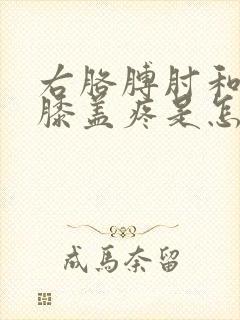 右胳膊肘和
膝盖疼是怎
成馬奈留